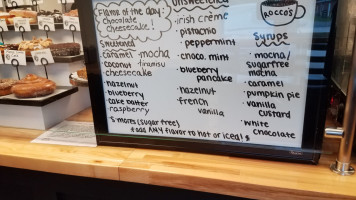 Flavor of the day:
Chocolate
Cheesecake!
Sweetened
caramel · mocha
coconut · tiramisu
· cheesecake
· hazelnut
· blueberry
· cake batter
· raspberry
· s'mores (sugar free)
Unsweetened
· irish crème
· pistachio
· peppermint
· choco. mint
· blueberry
pancake
· hazelnut
· french
vanilla
ROCCO'S
Syrups
· mocha/
sugarfree
mocha
· caramel
· pumpkin pie
· vanilla
custard
· white
chocolate
add ANY flavor to hot or iced!